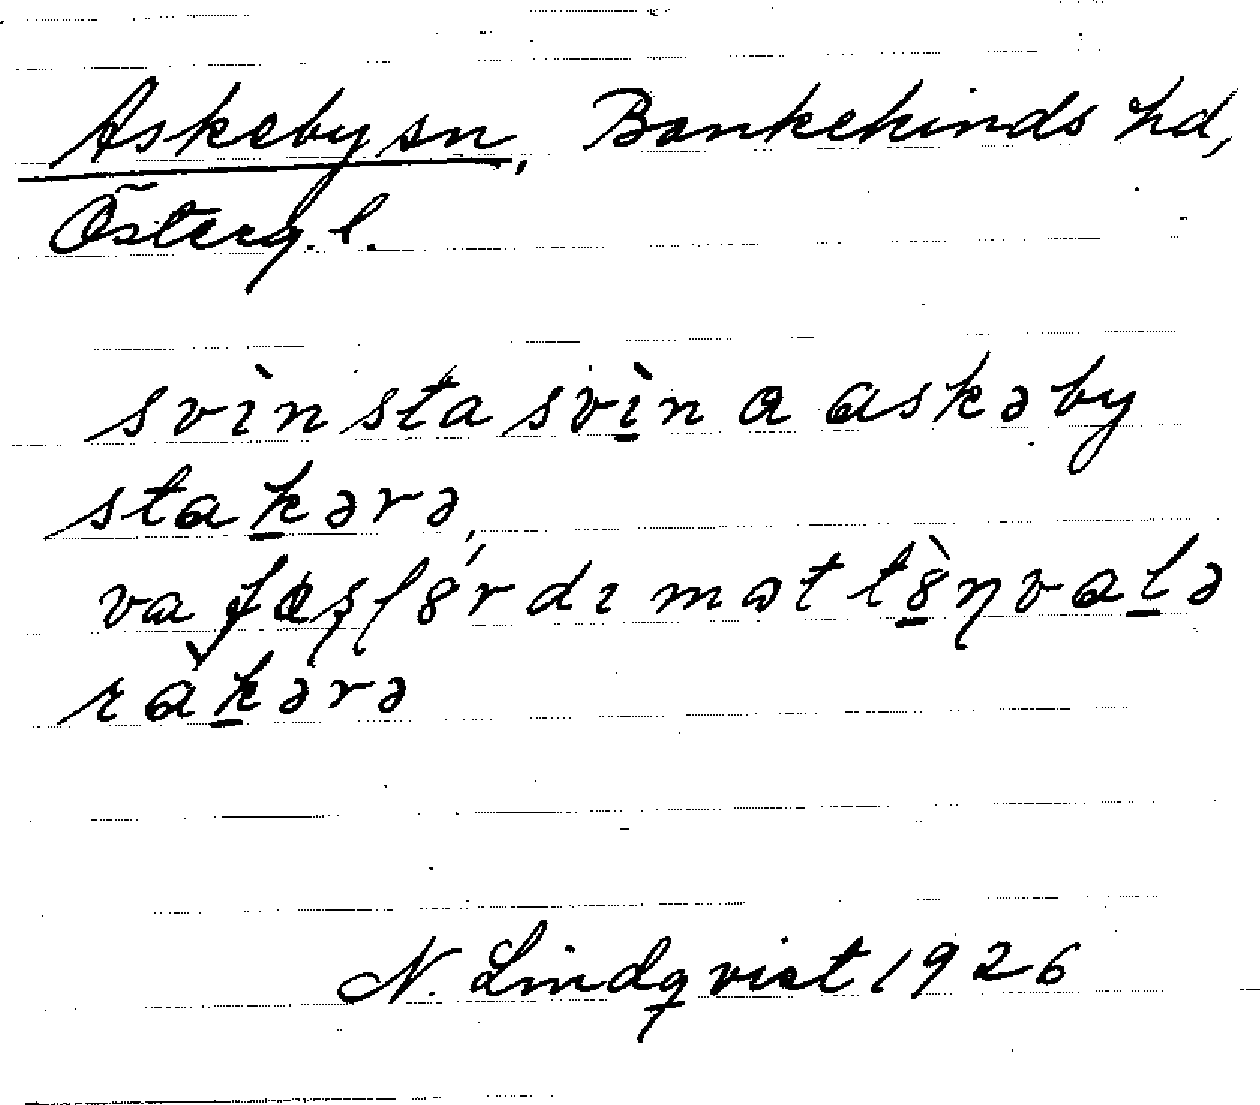 Askeby sn, Bankekinds hd,
Österg.l.
svìnsta svì̱n a askəby
staḵərə,
va fæʂ fȣ́r dɩ mət tȣ̱̀ŋvaḻə
ràḵərə
N. Lindqvist 1926